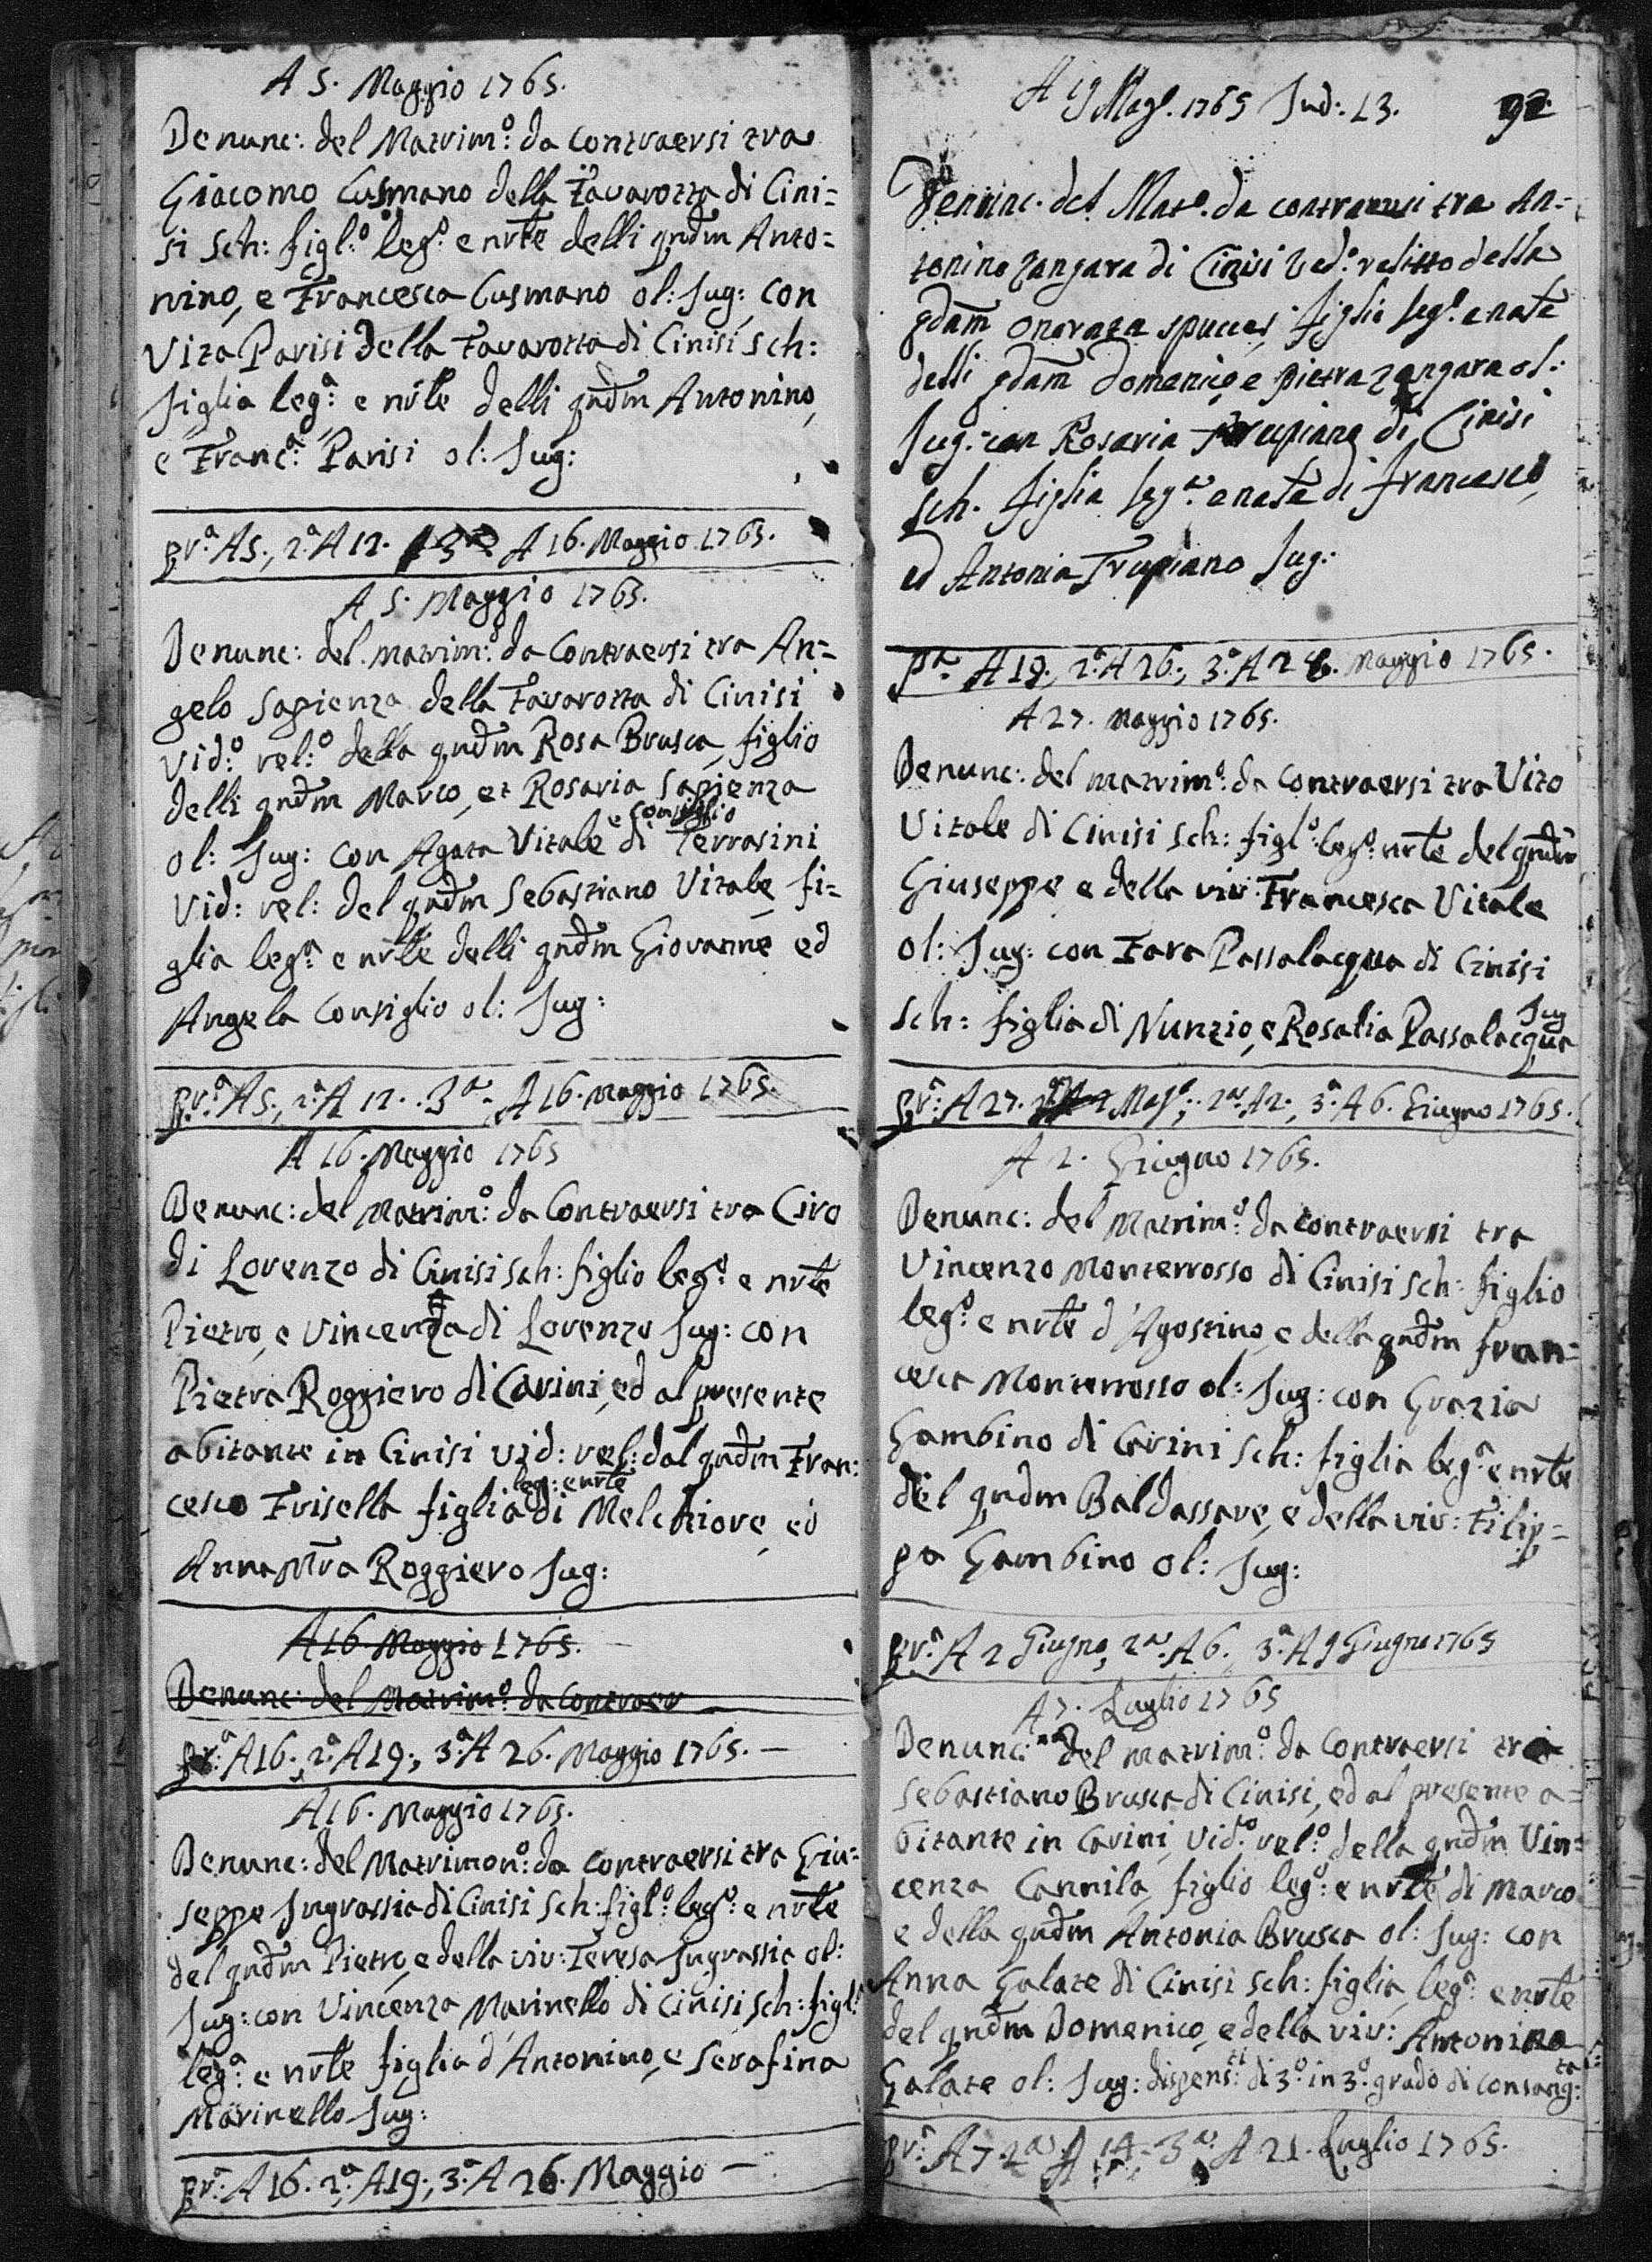 A 5. Maggio 1765.
Denunc: del Matrim:º da contraersi tra
Giacomo Cusmano della Favarotta di Cini=
si Sch: figl:º leg:º e nrłe delli qnđm Anto=
nino, e Francesca Cusmano ol: Jug: con
Vita Parisi della Favarotta di Cinisi Sch:
figlia leg:ª e nrłe delli qnđm Antonino,
e Franc:ª Parisi ol: Jug:
Pr:ª A 5., 2:ª A 12. 3ª A 16. Maggio 1765.
A 5. Maggio 1765.
Denunc: del matrim:º da Contraersi tra An=
gelo Sapienza della Favarotta di Cinisi
Vid:º rel:º della qnđm Rosa Brusca, figlio
delli qnđm Marco, et Rosaria Sapienza
ol: Jug: con Agata Vitale e Consiglio di Terrasini
Vid: rel: del qnđm Sebastiano Vitale, fi=
glia leg:ª e nrłe delli qnđm Giovanne ed
Angela Consiglio ol: Jug:
Pr:ª A 5., 2:ª A 12. 3ª A 16. Maggio 1765.
A 16. Maggio 1765
Denunc: del Matrim:º da Contraersi tra Ciro
di Lorenzo di Cinisi Sch: figlio leg:º e nrłe
Pietro, e Vincenza di Lorenzo Jug: con
Pietra Roggiero di Carini, ed al presente
abitante in Cinisi vid: rel: dal qnđm Fran:
cesco Frisella figlia leg: e nrłe di Melchiore, ed
Anna Mrā Roggiero Jug:
A 16. Maggio 1765.
Denunc: del Matrim:º da Contraer
Pr:ª A 16., 2:ª A 19., 3:ª A 26. Maggio 1765.—
A 16. Maggio 1765.
Denunc: del Matrimon:º da contraersi tra Giu=
seppe Ingrassia di Cinisi Sch: figl:º leg:º e nrłe
del qnđm Pietro, e della viv: Teresa Ingrassia ol:
Jug: con Vincenza Marinello di Cinisi Sch: figl:ª
leg:ª e nrłe figlia d'Antonino, e Serafina
Marinello Jug:
Pr:ª A 16. 2:ª A 19., 3:ª A 26. Maggio —
A 19 Mag:º 1765 Ind: 13. 92
Denunc. del Mat:º da contraersi tra An=
tonino Zangara di Cinisi Ved:º relitto della
qdam̄ Onorata Spucces, figlio leg:º e nate
delli qdam̄ Domenico, e Pietra Zangara ol:
Jug: con Rosaria Trupiano di Cinisi
Sch. figlia leg:ª e nate di Francesco,
ed Antonia Trupiano Jug:
Pª A 19., 2:ª A 26., 3:ª A 28. Maggio 1765.
A 27. Maggio 1765.
Denunc: del matrim:º da contraersi tra Vito
Vitale di Cinisi Sch: figl:º leg:º nrłe del qnđm
Giuseppe e della viv: Francesca Vitale
ol: Jug: con Fara Passalacqua di Cinisi
Sch: figlia di Nunzio, e Rosalia Passalacqua Jug
Pr:ª A 27. Mag:º, 2ª A 2., 3:ª A 6. Giugno 1765.
A 2. Giugno 1765.
Denunc: del Matrim:º da contraersi tra
Vincenzo Monterrosso di Cinisi Sch: figlio
leg:º e nrłe d'Agostino, e della qnđm Fran=
cesca Monterrosso ol: Jug: con Grazia
Gambino di Carini Sch: figlia leg:ª e nrłe
del qnđm Baldassare, e della viv: Filip=
pa Gambino ol: Jug:
Pr:ª A 2 Giugno, 2ª A 6., 3:ª A 9 Giugno 1765
A 7. Luglio 1765
Denunc: del matrim:º da Contraersi tra
Sebastiano Brusca di Cinisi, ed al presente a=
bitante in Carini, Vid:º rel:º della qnđm Vin=
cenza Cannila, figlio leg:º e nrłe di Marco
e della qnđm Antonia Brusca ol: Jug: con
Anna Galate di Cinisi Sch: figlia leg:ª e nrłe
del qnđm Domenico, e della viv: Antonina
Galate ol: Jug: dispens:ti di 3:º in 3:º grado di consang:ta
Pr:ª A 7. 2ª A 14. 3ª A 21. Luglio 1765.